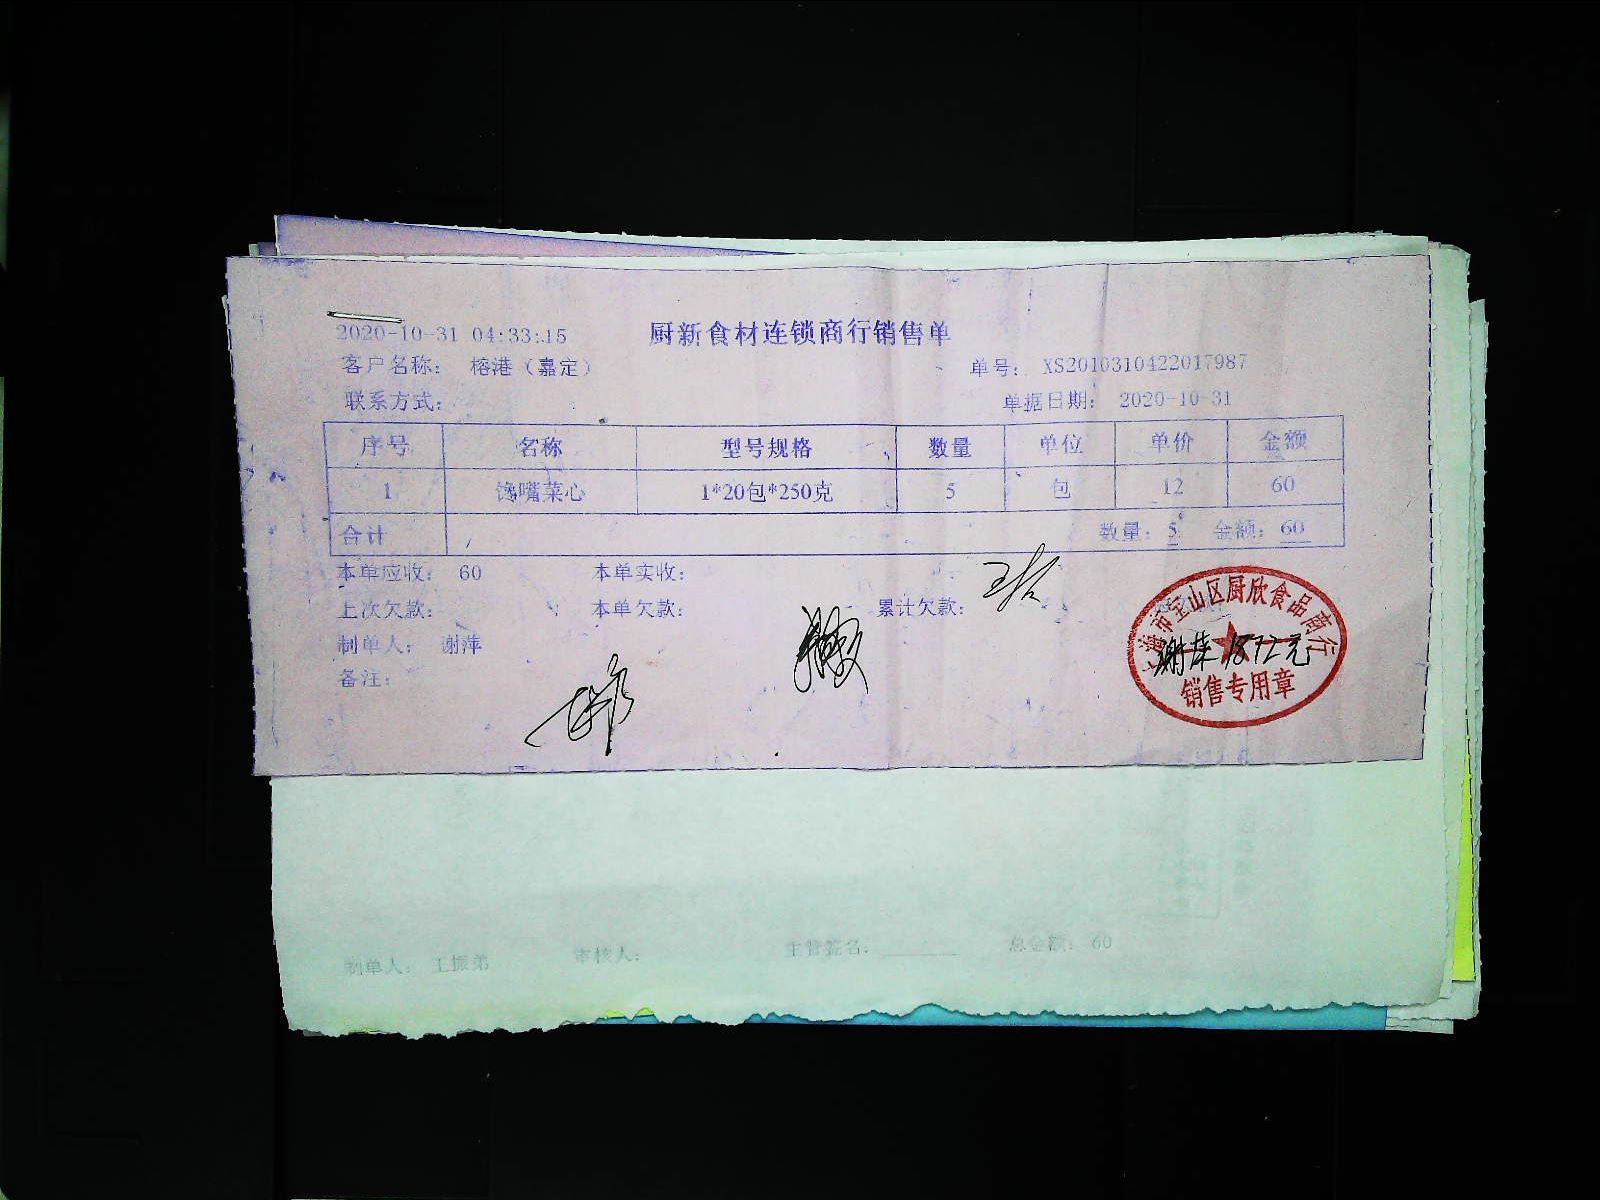 2020-10-31 04:33:15
厨新食材连锁商行销售单
客户名称： 榕港（嘉定）
单号： XS2010310422017987
联系方式：
单据日期： 2020-10-31
序号 名称 型号规格 数量 单位 单价 金额
1 馋嘴菜心 1*20包*250克 5 包 12 60
合计 数量：5 金额：60
本单应收： 60 本单实收：
上次欠款： 本单欠款： 累计欠款：
制单人： 谢萍
备注：
上海市宝山区厨欣食品商行
1872元
销售专用章
制单人： 王振弟 审核人： 主管签名： 总金额： 60